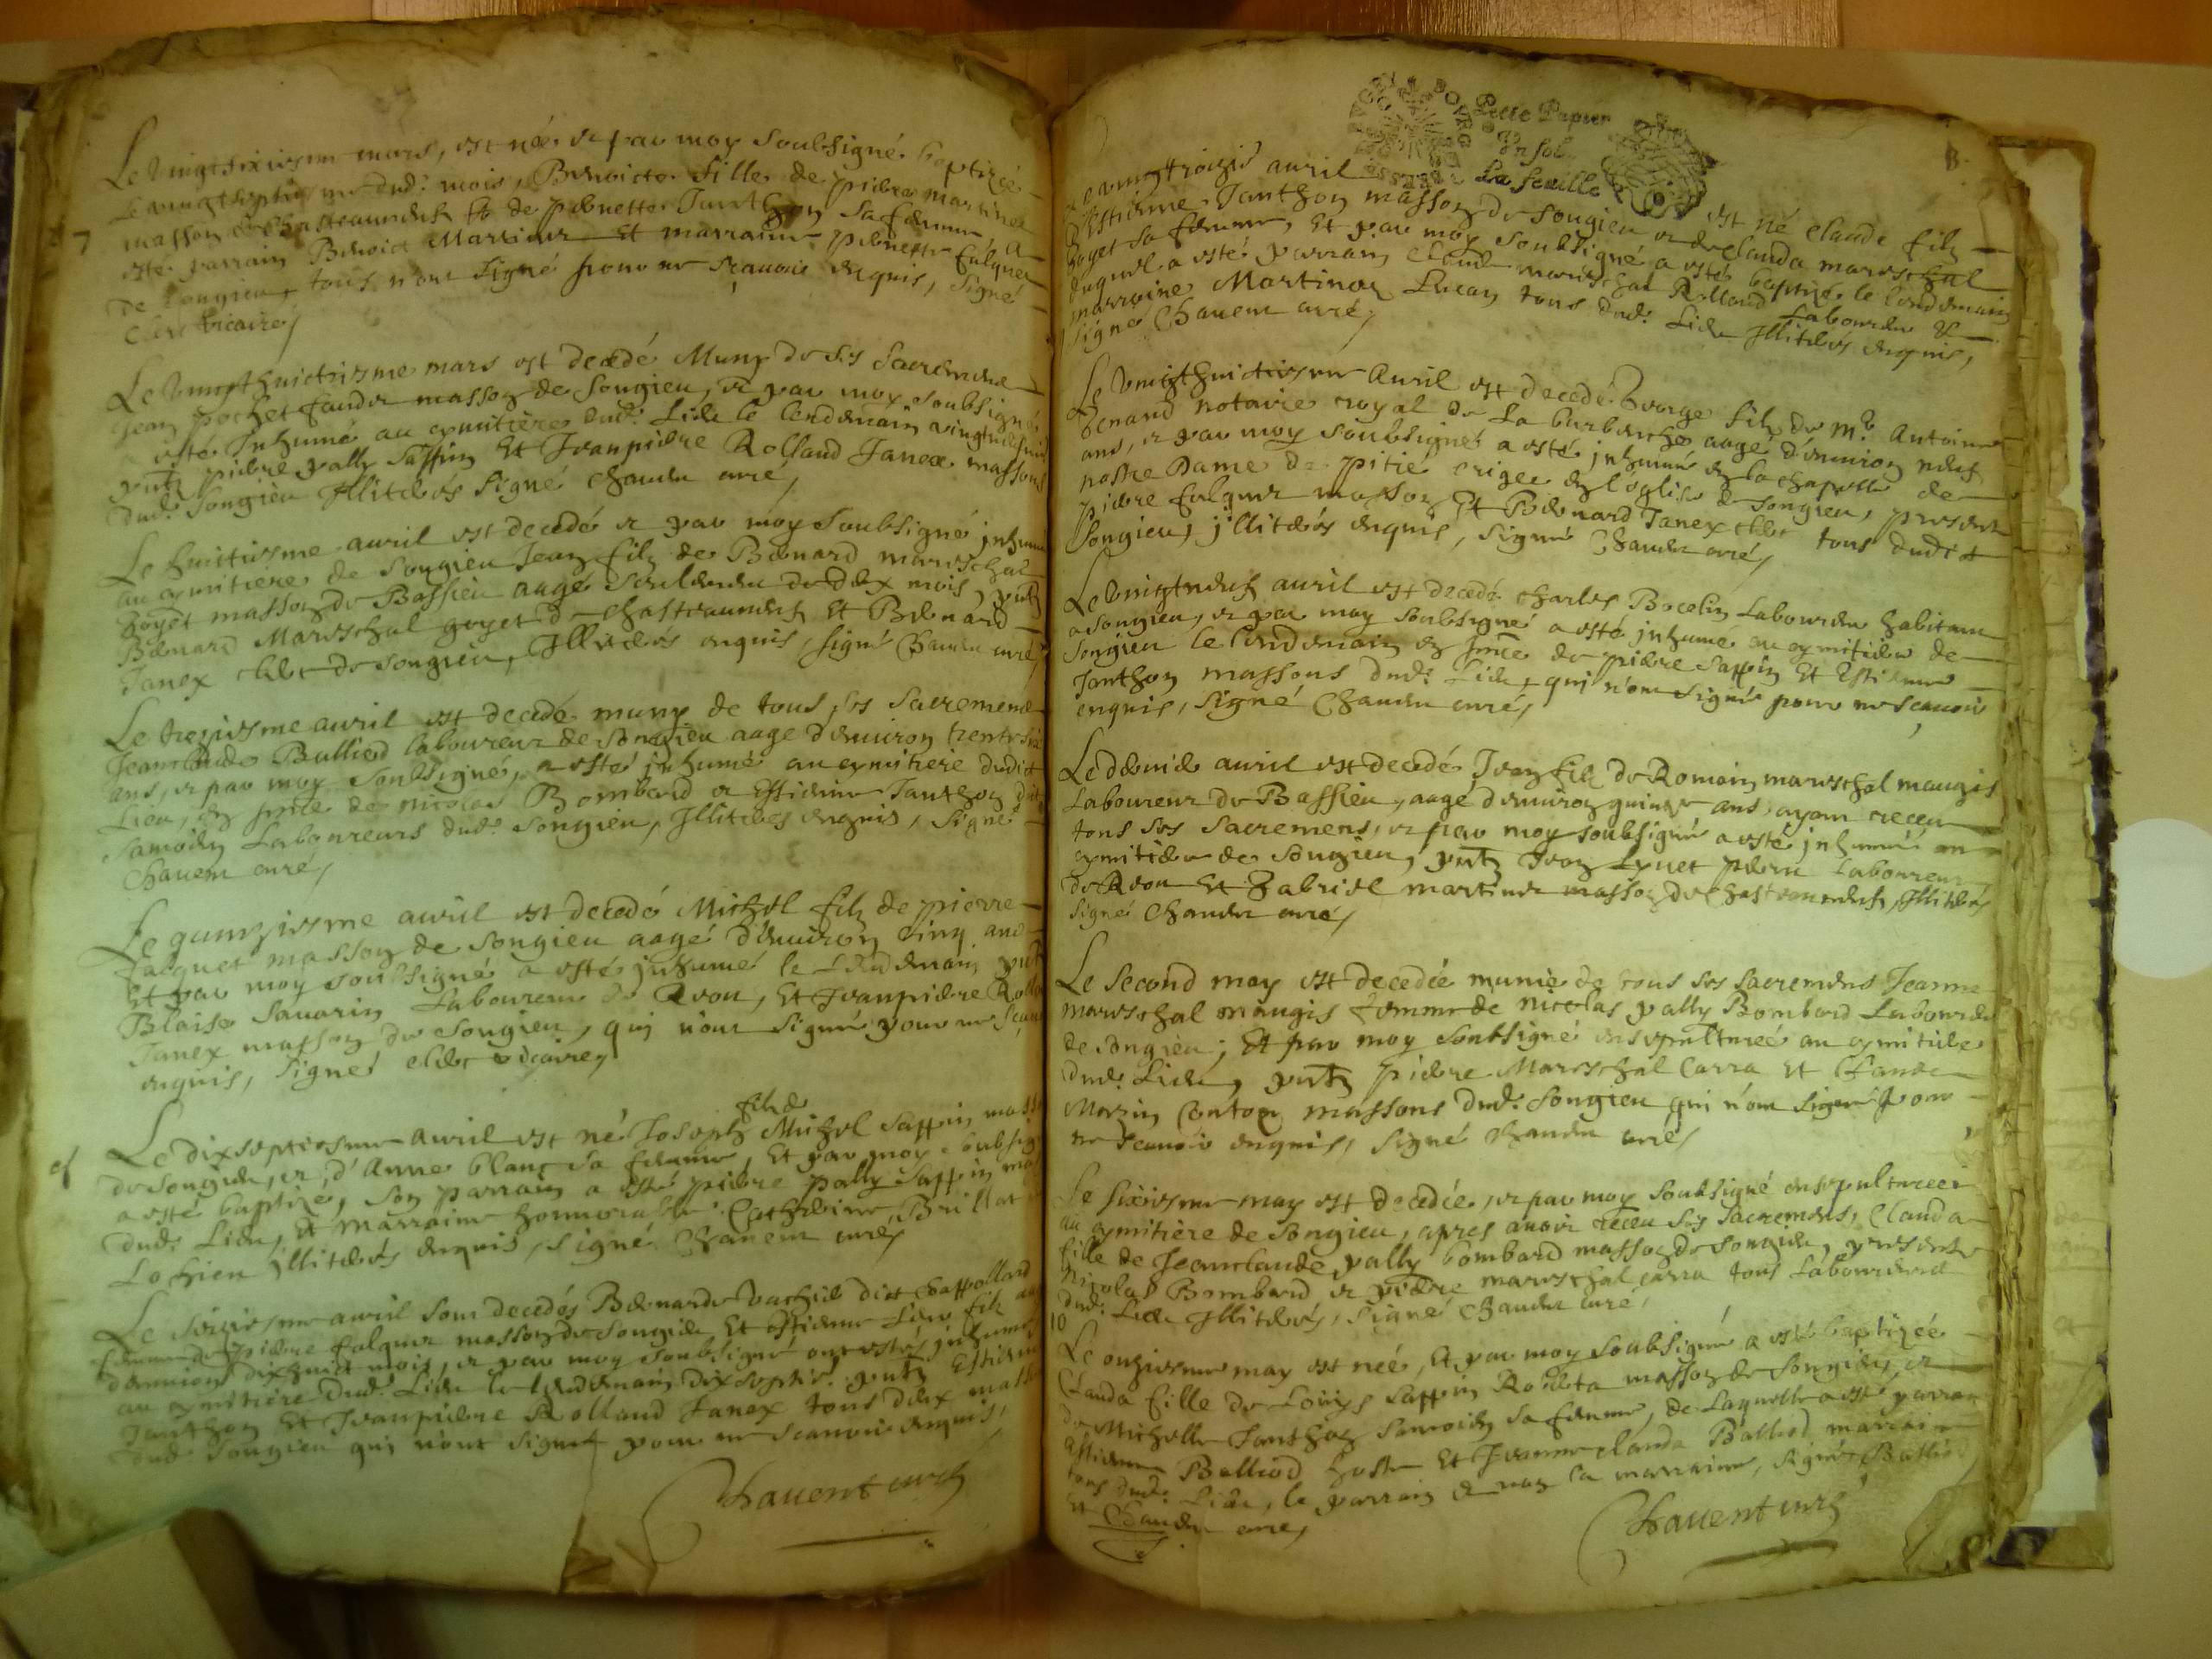 Le vingtsixiesme mars, est née et par moy soubsigné baptizée
le vingtseptiesme dud. mois, Benoicte fille de pierre martinez
7
masson de chasteauneuf et de pernette Janthon sa femme, a
esté parrain Benoict Martinez et marraine pernette falquez
de songieu, tous n'ont signé pour ne sçavoir enquis, signé
Clerc vicaire
Le vingthuictiesme mars est decedé Muny de ses sacremens
Jean pochet masson de songieu, et par moy soubsigné
esté Inhumé au cymitière dud. Lieu le lendemain
pntz pierre pally sappin Et Jeanpierre Rolland Janex massons
dud. songieu Illiterés signé chavent curé
Le huitiesme avril est decedé et par moy soubsigné inhumé
au cymitiere de songieu Jean filz de Bernard mareschal
goyet masson de Bassieu aagé seulement de dix mois, pntz
Bernard Mareschal goyet de chasteauneuf et Bernard
Janex clerc de songieu, Illiterés enquis, signé Chavent curé
Le treziesme avril est decedé muny de tous ses sacremens
Jeanclaude Balliod laboureur de songieu aagé d'environ trentesix
ans, et par moy soubsigné, a esté inhumé au cymitiere dudit
Lieu, en pnce de nicolas Bombard et Estienne Janthon dit
samoin Laboureurs dud. songieu, Illiterés enquis, signé
Chavent curé
Le quinziesme avril est decedé Michel filz de pierre
falquet masson de songieu aagé d'environ cinq ans
Et par moy soubsigné a esté inhumé le lendemain pntz
Blaise Savarin Laboureur de Rvon, Et Jeanpierre Rolland
Janex masson de songieu, qui n'ont signé pour ne sçavoir
enquis, signé clerc vicaire
filz de
Le dixseptiesme avril est né Joseph Michel sappin masson
de songieu, et d'Anne blanc sa femme, Et par moy soubsigné
a esté baptizé, son parrain a esté pierre pally sappin masson
dud. Lieu, Et marraine honnorable Catherine Brillat
Lochieu illiterés enquis, signé Chavent curé
Le seiziesme avril sont decedés Bernarde vachié dict chappollard
femme de pierre falquez masson de songieu, Et Estienne filz
d'environ dixhuict mois, et par moy soubsigné ont estés inhumés
au cymitiere dud. Lieu le lendemain dixseptie. pntz Estienne
Janthon Et Jeanpierre Rolland Janex tous deux massons
dud. songieu qui n'ont signé pour ne scavoir enquis,
Chavent curé
Petit Papier
In fol
La feuille
8.
Le vingtroizie avril est né claude filz
d'Estienne Janthon masson de songieu et de clauda mareschal
goyet sa femme, Et par moy soubsigné a esté baptizé le lendemain
duquel a esté parrain claude mareschal Rolland Laboureur &
marraine Martinaz Lucan tous dud. Lieu Illiterés enquis,
signé Chavent curé
Le vingthuictiesme Avril est decedé George filz de Me Antoine
Benand notaire royal de La burbanche aagé d'environ neuf
ans, et par moy soubsigné a esté inhumé en la chapelle de
nostre Dame de pitié erigée en l'eglise de songieu, presents
pierre falquez masson Et Bernard Janex clerc tous dudit
songieu, illiterés enquis, signé Chavent curé
Le vingtneuf avril est decedé charles Bocelin Laboureur habitant
a songieu, et par moy soubsigné a esté inhumé au cymitiere de
songieu le lendemain en pnce de pierre sappin Et Estienne
Janthon massons dud. Lieu, qui n'ont signé pour ne scavoir
enquis, signé Chavent curé
Le dernier avril est decedé Jean filz de Romain mareschal maugis
Laboureur de Bassieu, aagé d'environ quinze ans, ayant receu
tous ses sacremens, et par moy soubsigné a esté inhumé au
cymitiere de songieu, pntz Jean Lynet Laboureur
de Rvon Et Gabriel martinez masson de chasteauneuf, Illiterés
signé Chavent curé
Le second may est decedée munie de tous ses sacremens Jeanne
mareschal maugis femme de nicolas pally Bombard Laboureur
de songieu; Et par moy soubsigné ensepulturée au cymitiere
dud. Lieu, pntz pierre Mareschal Carra Et Claude
Mazin Conton massons dud. songieu qui n'ont signé pour
ne scavoir enquis, signé Chavent curé
Le sixiesme may est decedée, et par moy soubsigné ensepulturée
au cymitière de songieu, apres avoir receu ses sacremens, Clauda
fille de Jeanclaude pally bombard masson de songieu, presents
Nicolas Bombard et pierre mareschal carra tous Laboureurs
dud. Lieu Illiterés, signé Chavent curé
10
Le onziesme may est née, Et par moy soubsigné a esté baptizée
Clauda fille de Louys sappin Roleta masson de songieu, et
de Michelle Janthon samoin sa femme, de Laquelle a esté parrain
Estienne Balliod hoste Et Jeanne clauda Balliod marraine
tous dud. Lieu, le parrain et non la marraine, signé Balliod
et Chavent curé
Chavent curé